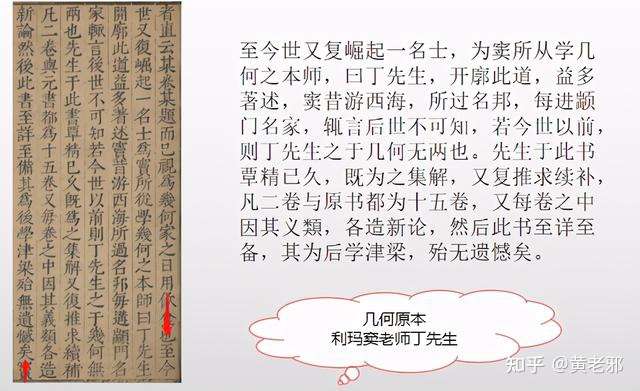 者直云某卷某題而已視為幾何家之日用也至今
世又復崛起一名士為竇所從學幾何之本師曰丁先生
開廓此道益多著述竇昔游西海所過名邦每遘顓門名
家輒言後世不可知若今世以前則丁先生之于幾何無
兩也先生于此書覃精已久既為之集解又復推求續補
凡二卷與元書都為十五卷又每卷之中因其義類各造
新論然後此書至詳至備其為後學津梁殆無遺憾矣
至今世又复崛起一名士，为窦所从学几
何之本师，曰丁先生，开廓此道，益多
著述，窦昔游西海，所过名邦，每进颛
门名家，辄言后世不可知，若今世以前，
则丁先生之于几何无两也。先生于此书
覃精已久，既为之集解，又复推求续补，
凡二卷与原书都为十五卷，又每卷之中
因其义類，各造新论，然后此书至详至
备，其为后学津梁，殆无遗憾矣。
几何原本
利玛窦老师丁先生
知乎 @黄老邪